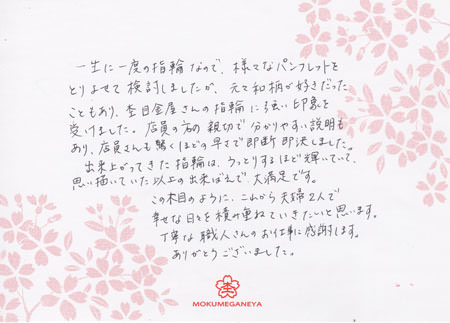 一生に一度の指輪なので、様々なパンフレットを
とりよせて検討しましたが、元々和柄が好きだった
こともあり、杢目金屋さんの指輪に強い印象を
受けました。店員の方の親切で分かりやすい説明も
あり、店員さんも驚くほどの早さで即断即決しました。
出来上がってきた指輪は、うっとりするほど輝いていて、
思い描いていた以上の出来ばえで、大満足です。
この木目のように、これから夫婦2人で
幸せな日々を積み重ねていきたいと思います。
丁寧な職人さんのお仕事に感謝します。
ありがとうございました。
杢
MOKUMEGANEYA